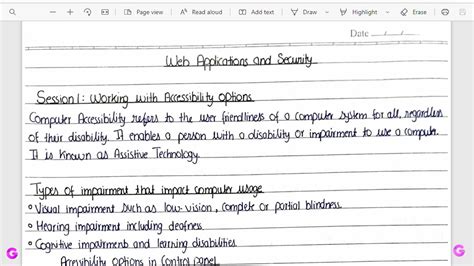 Page view
Read aloud
Add text
Draw
Highlight
Erase
Date
Web Applications and Security
Session 1: Working with Accessibility options
Computer Accessibility refers to the user friendliness of a computer system for all, regardless
of their disability. It enables a person with a disability or impairment to use a computer.
It is Known as Assistive Technology.
Types of impairment that impact computer usage
Visual impairment such as low-vision, complete or partial blindness.
Hearing impairment including deafness.
Cognitive impairments and learning disabilities.
Accesibility Options in Control panel
G
G